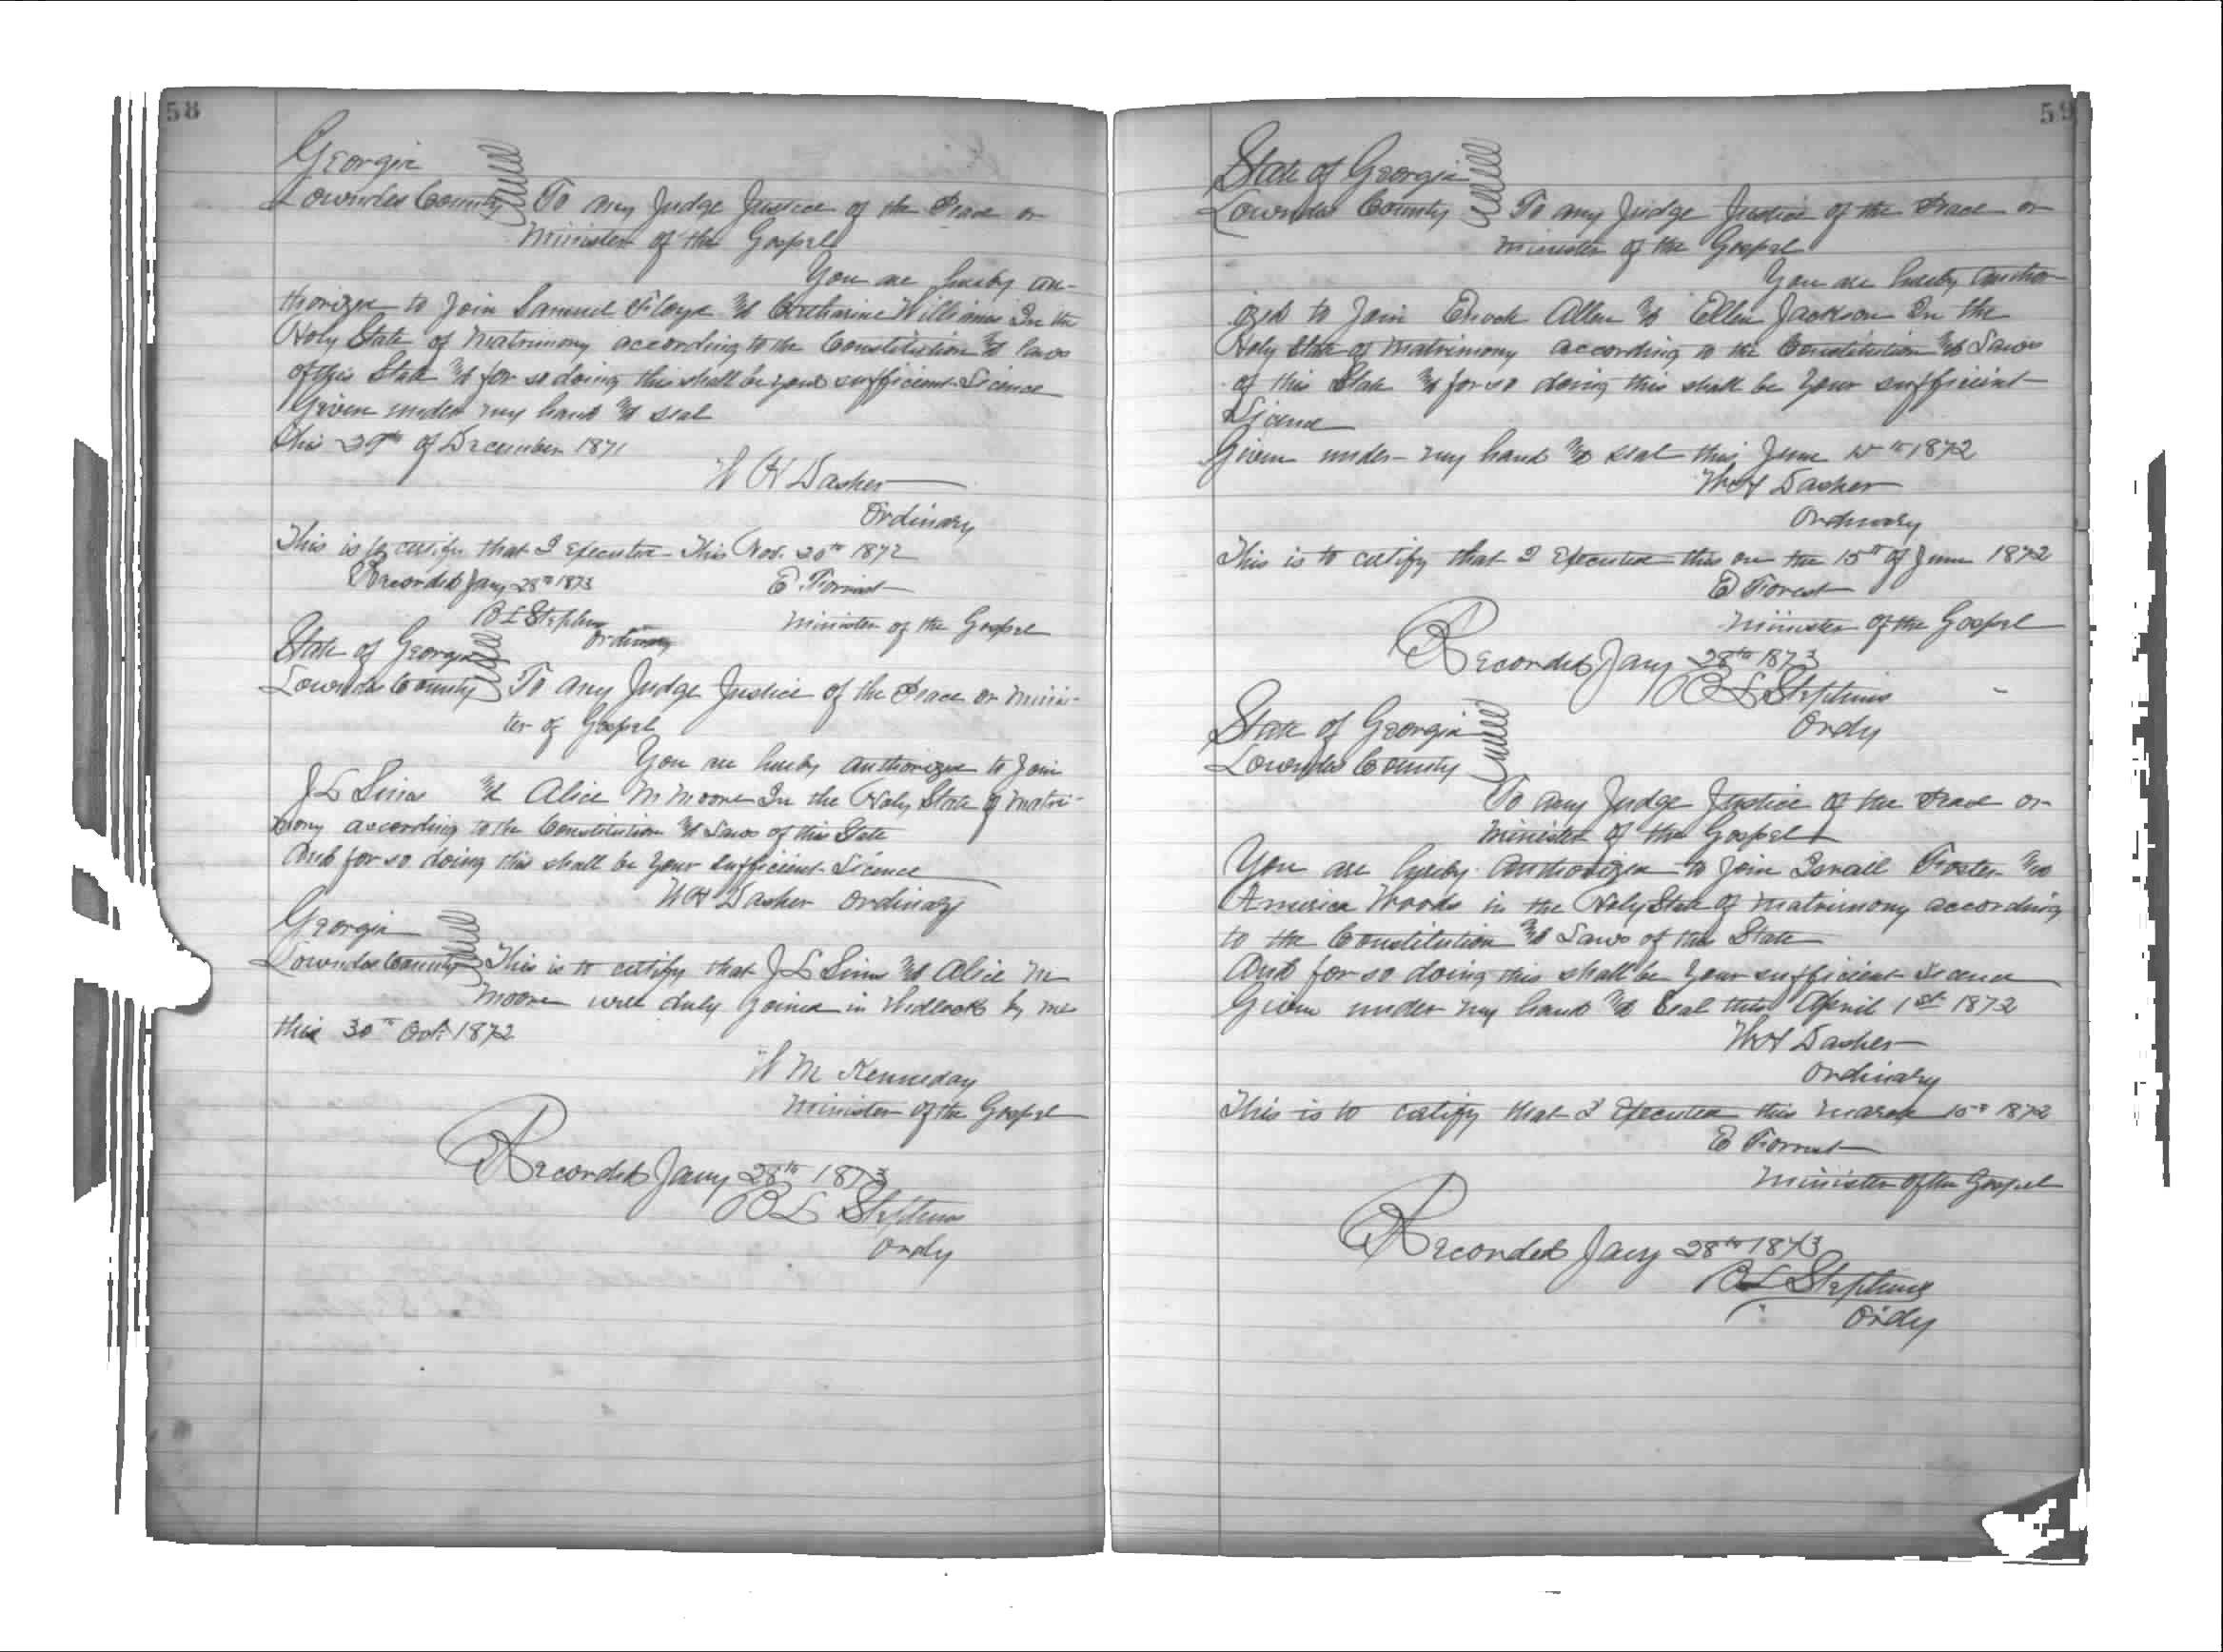 58
Georgia
Lowndes County To any Judge Justice of the Peace or
Minister of the Gospel
You are hereby au-
thorized to Join Samuel Floyd & Catharine Williams In the
Holy State of Matrimony according to the Constitution & Laws
of this State & for so doing this shall be your sufficient Licence
Given under my hand & seal
this 29th of December 1871
W H Dasher
Ordinary
This is to certify that I Executed This Nov. 20th 1872
Recorded Jany 28th 1873 E. Forrest
B L Stephens Minister of the Gospel
Ordinary
State of Georgia
Lowndes County To any Judge Justice of the Peace or Minis-
ter of Gospel
You are hereby authorized to Join
J L Sims & Alice M Moore In the Holy State of Matri-
mony according to the Constitution & Laws of this State
And for so doing this shall be your sufficient Licence
W H Dasher Ordinary
Georgia
Lowndes County This is to certify that J L Sims & Alice M
Moore were duly joined in Wedlock by me
this 30th Oct. 1872
W M Kenneday
Minister of the Gospel
Recorded Jany 28th 1873
B L Stephens
Ordy
59
State of Georgia
Lowndes County To any Judge Justice of the Peace or
Minister of the Gospel
You are hereby author
ized to Join Enock Allen & Ellen Jackson In the
Holy State of Matrimony according to the Constitution & Laws
of this State & for so doing this shall be your sufficient
Licence
Given under my hand & seal this June 1872
W H Dasher
Ordinary
This is to certify that I Executed this on the 15th of June 1872
E Forest
Minister of the Gospel
Recorded Jany 28th 1873
B L Stephens
Ordy
State of Georgia
Lowndes County
To any Judge Justice of the Peace or
Minister of the Gospel
You are hereby authorized to Join Israil Foster &
America Woods in the Holy State of Matrimony according
to the Constitution & Laws of this State
And for so doing this shall be your sufficient Licence
Given under my hand & Seal this April 1st 1872
W H Dasher
Ordinary
This is to certify that I Executed this March 1872
E Forrest
Minister of the Gospel
Recorded Jany 28th 1873
B L Stephens
Ordy